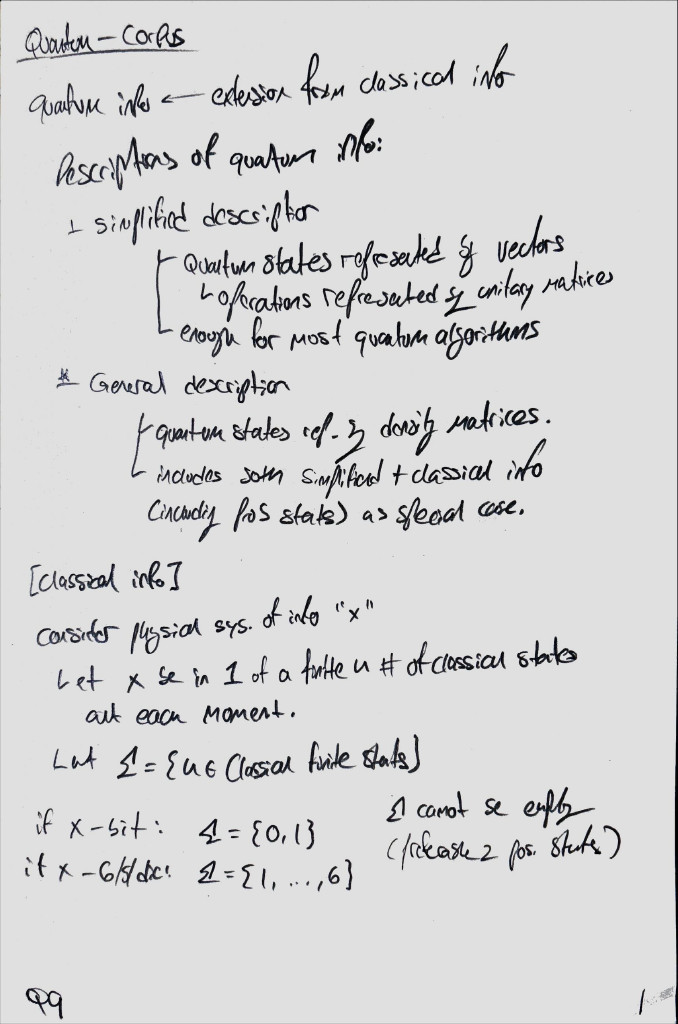 Quantum - Corpus
quantum info ← extension from classical info
Descriptions of quantum info:
simplified description
Quantum states represented by vectors
operations represented by unitary matrices
enough for most quantum algorithms
* General description
quantum states rep. by density matrices.
includes both simplified + classical info
(including pos states) as special case.
[classical info]
consider physical sys. of info "x"
Let x be in 1 of a finite n # of classical states
at each moment.
Let Σ = {n ∈ Classical finite states}
if x-bit: Σ = {0,1}
Σ cannot be empty
if x-6/s/dice: Σ = {1, ..., 6}
2 pos. states)
Q9
1